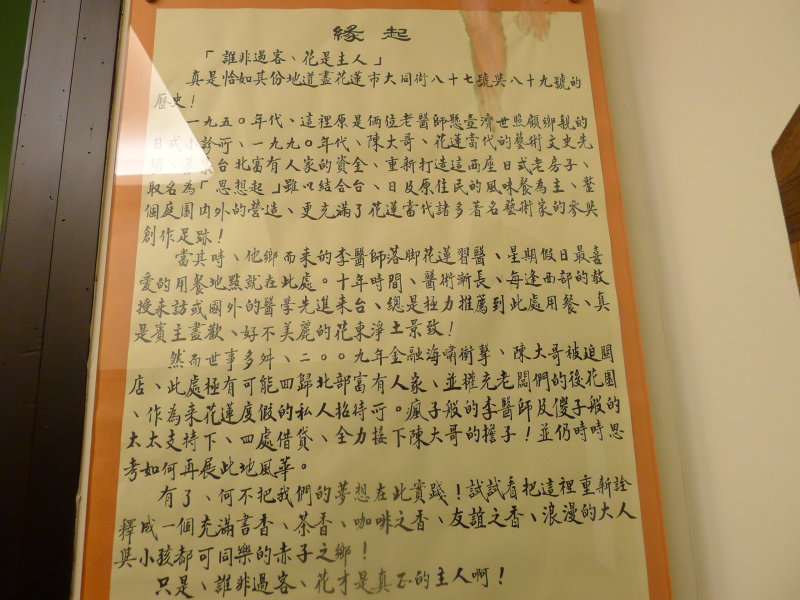 緣起
「誰非過客、花是主人」
真是恰如其份地道盡花蓮市大同街八十七號與八十九號的
歷史！
一九五〇年代、這裡原是倆位老醫師懸壺濟世照顧鄉親的
日式小診所、一九九〇年代、陳大哥、花蓮當代的藝術文史先
驅、募來台北富有人家的資金、重新打造這兩座日式老房子、
取名為「思想起」雖以結合台、日及原住民的風味餐為主、整
個庭園內外的營造、更充滿了花蓮當代諸多著名藝術家的參與
創作足跡！
當其時、他鄉而來的李醫師落脚花蓮習醫、星期假日最喜
愛的用餐地點就在此處。十年時間、醫術漸長、每逢西部的教
授來訪或國外的醫學先進來台、總是極力推薦到此處用餐、真
是賓主盡歡、好不美麗的花東淨土景致！
然而世事多舛、二〇〇九年金融海嘯衝擊、陳大哥被迫關
店、此處極有可能回歸北部富有人家、並權充老闆們的後花園
、作為來花蓮度假的私人招待所。瘋子般的李醫師及傻子般的
太太支持下、四處借貸、全力接下陳大哥的擔子！並仍時時思
考如何再展此地風華。
有了、何不把我們的夢想在此實踐！試試看把這裡重新詮
釋成一個充滿書香、茶香、咖啡之香、友誼之香、浪漫的大人
與小孩都可同樂的赤子之鄉！
只是、誰非過客、花才是真正的主人啊！